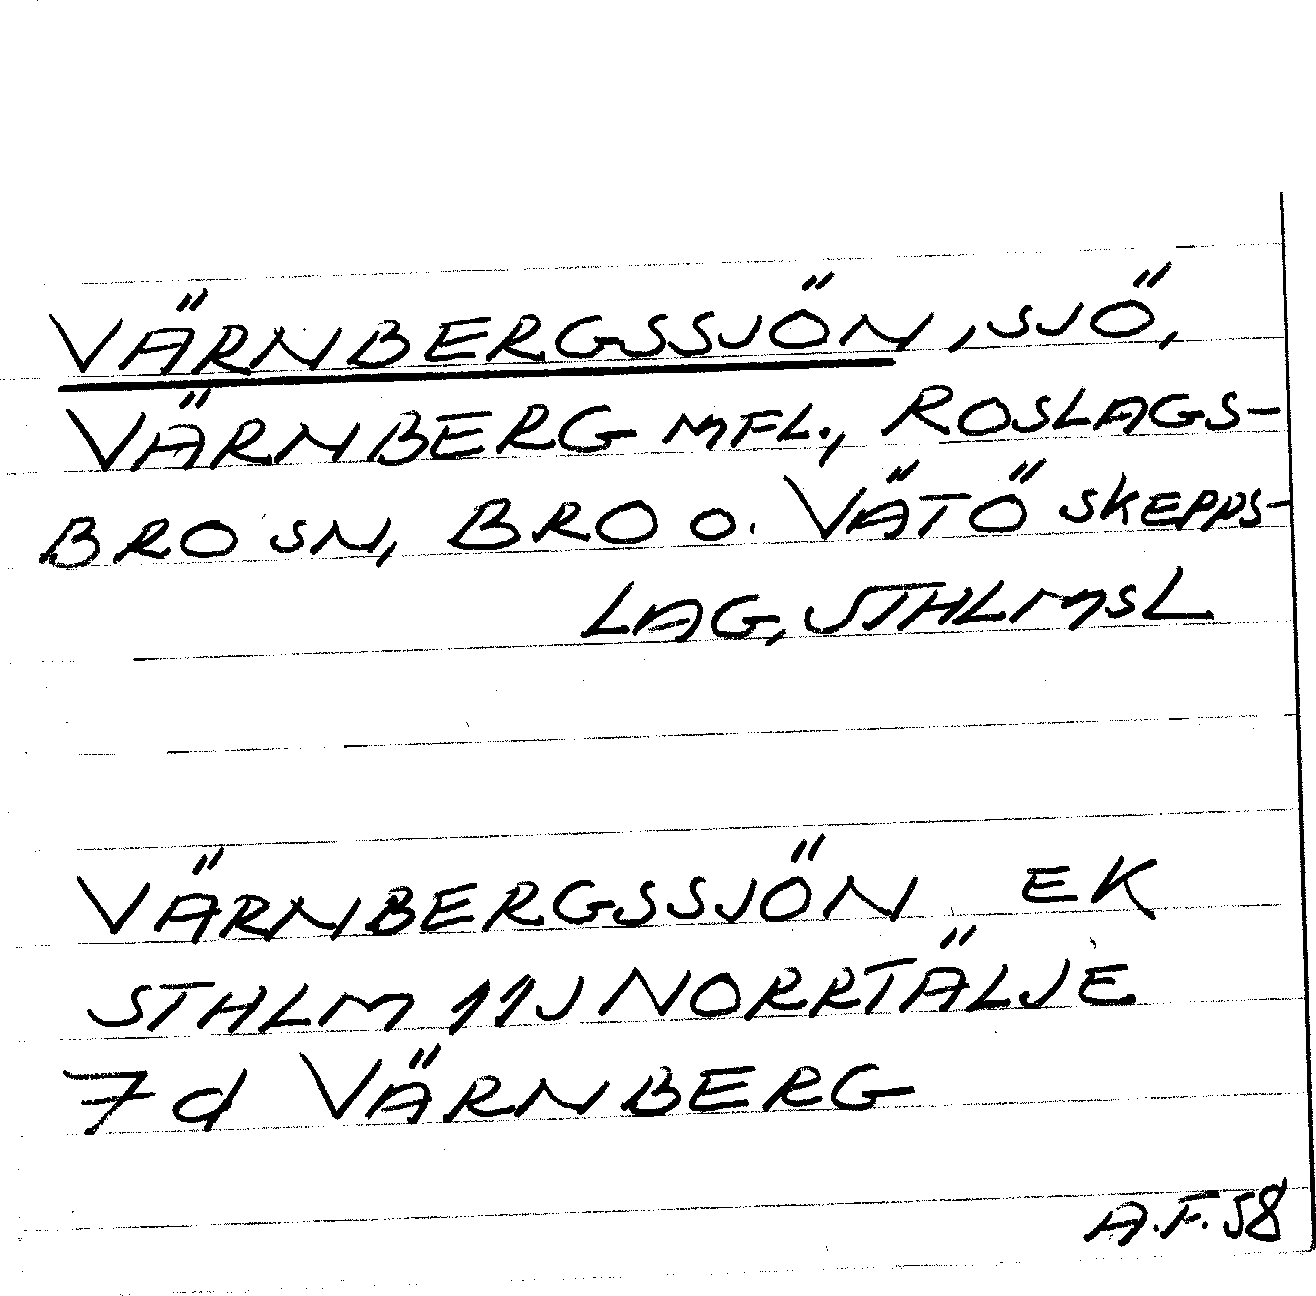 VÄRNBERGSSJÖN, SJÖ,
VÄRNBERG MFL., ROSLAGS-
BRO SN, BRO O. VÄTÖ SKEPPS-
LAG, STHLMSL
VÄRNBERGSSJÖN EK
STHLM 11J NORRTÄLJE
7d VÄRNBERG
A.F. 58